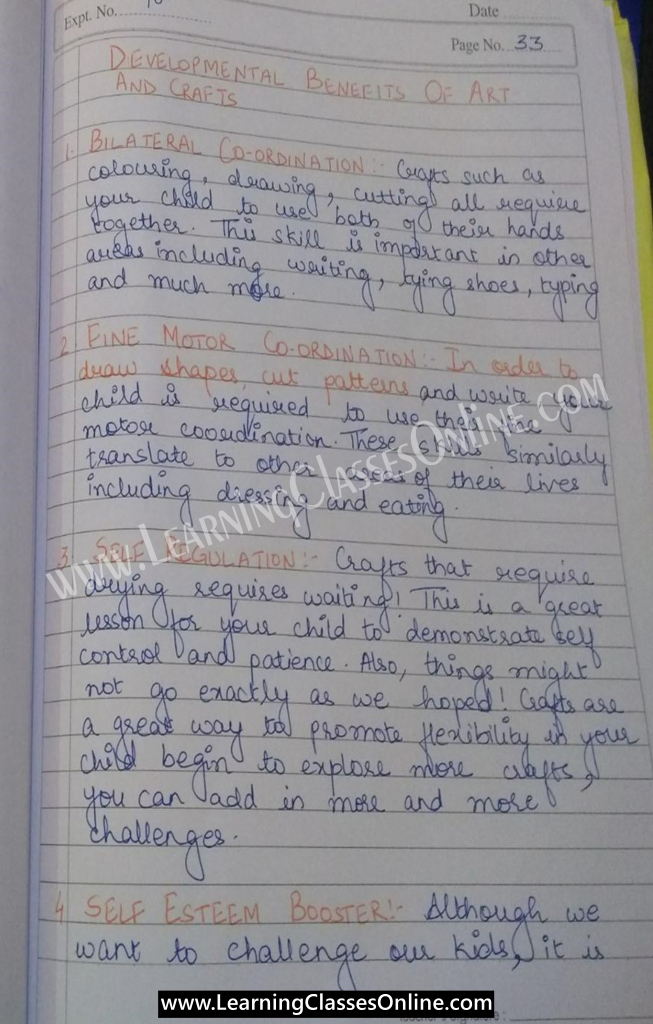 Expt. No.
Date
Page No. 33
DEVELOPMENTAL BENEFITS OF ART
AND CRAFTS
1. BILATERAL CO-ORDINATION:- Crafts such as
colouring, drawing, cutting all require
your child to use both of their hands
together. This skill is important in other
areas including writing, tying shoes, typing
and much more.
2. FINE MOTOR CO-ORDINATION:- In order to
draw shapes, cut patterns and write your
child is required to use their fine
motor coordination. These skills similarly
translate to other areas of their lives
including dressing and eating.
www.LearningClassesOnline.com
3. SELF REGULATION:- Crafts that require
drying requires waiting! This is a great
lesson for your child to demonstrate self
control and patience. Also, things might
not go exactly as we hoped! Crafts are
a great way to promote flexibility in your
child begin to explore more crafts,
you can add in more and more
challenges.
4 SELF ESTEEM BOOSTER:- Although we
want to challenge our kids, it is
www.LearningClassesOnline.com